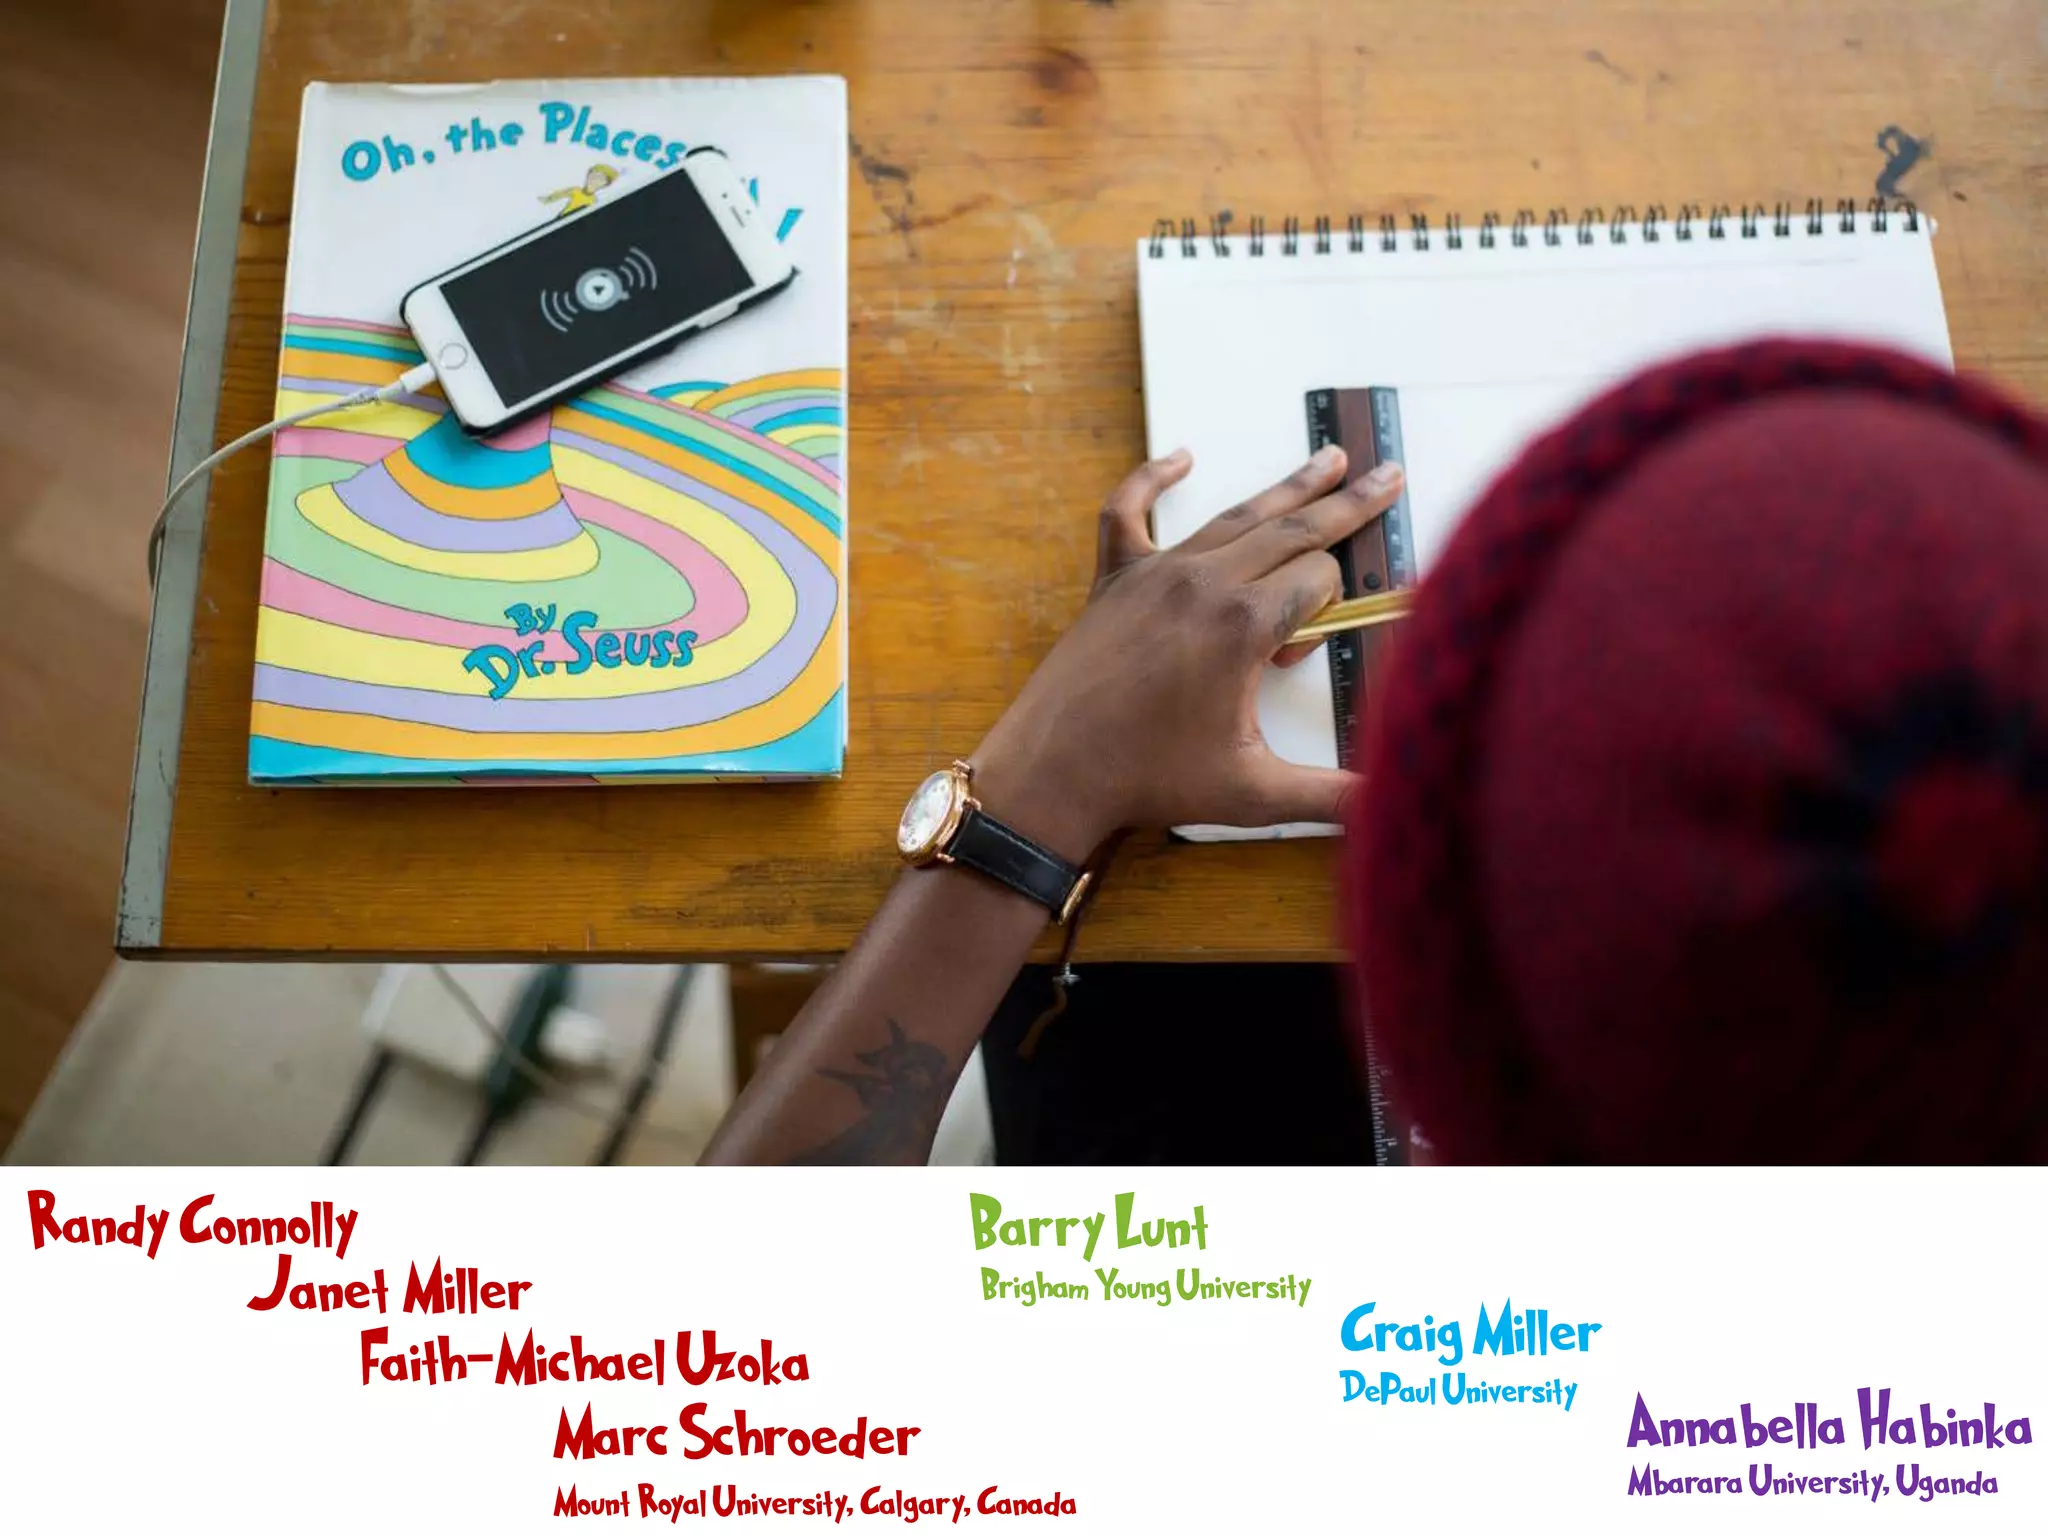 Oh, the Places
By
Dr. Seuss
Randy Connolly
Janet Miller
Faith-Michael Uzoka
Marc Schroeder
Mount Royal University, Calgary, Canada
Barry Lunt
Brigham Young University
Craig Miller
DePaul University
Annabella Habinka
Mbarara University, Uganda